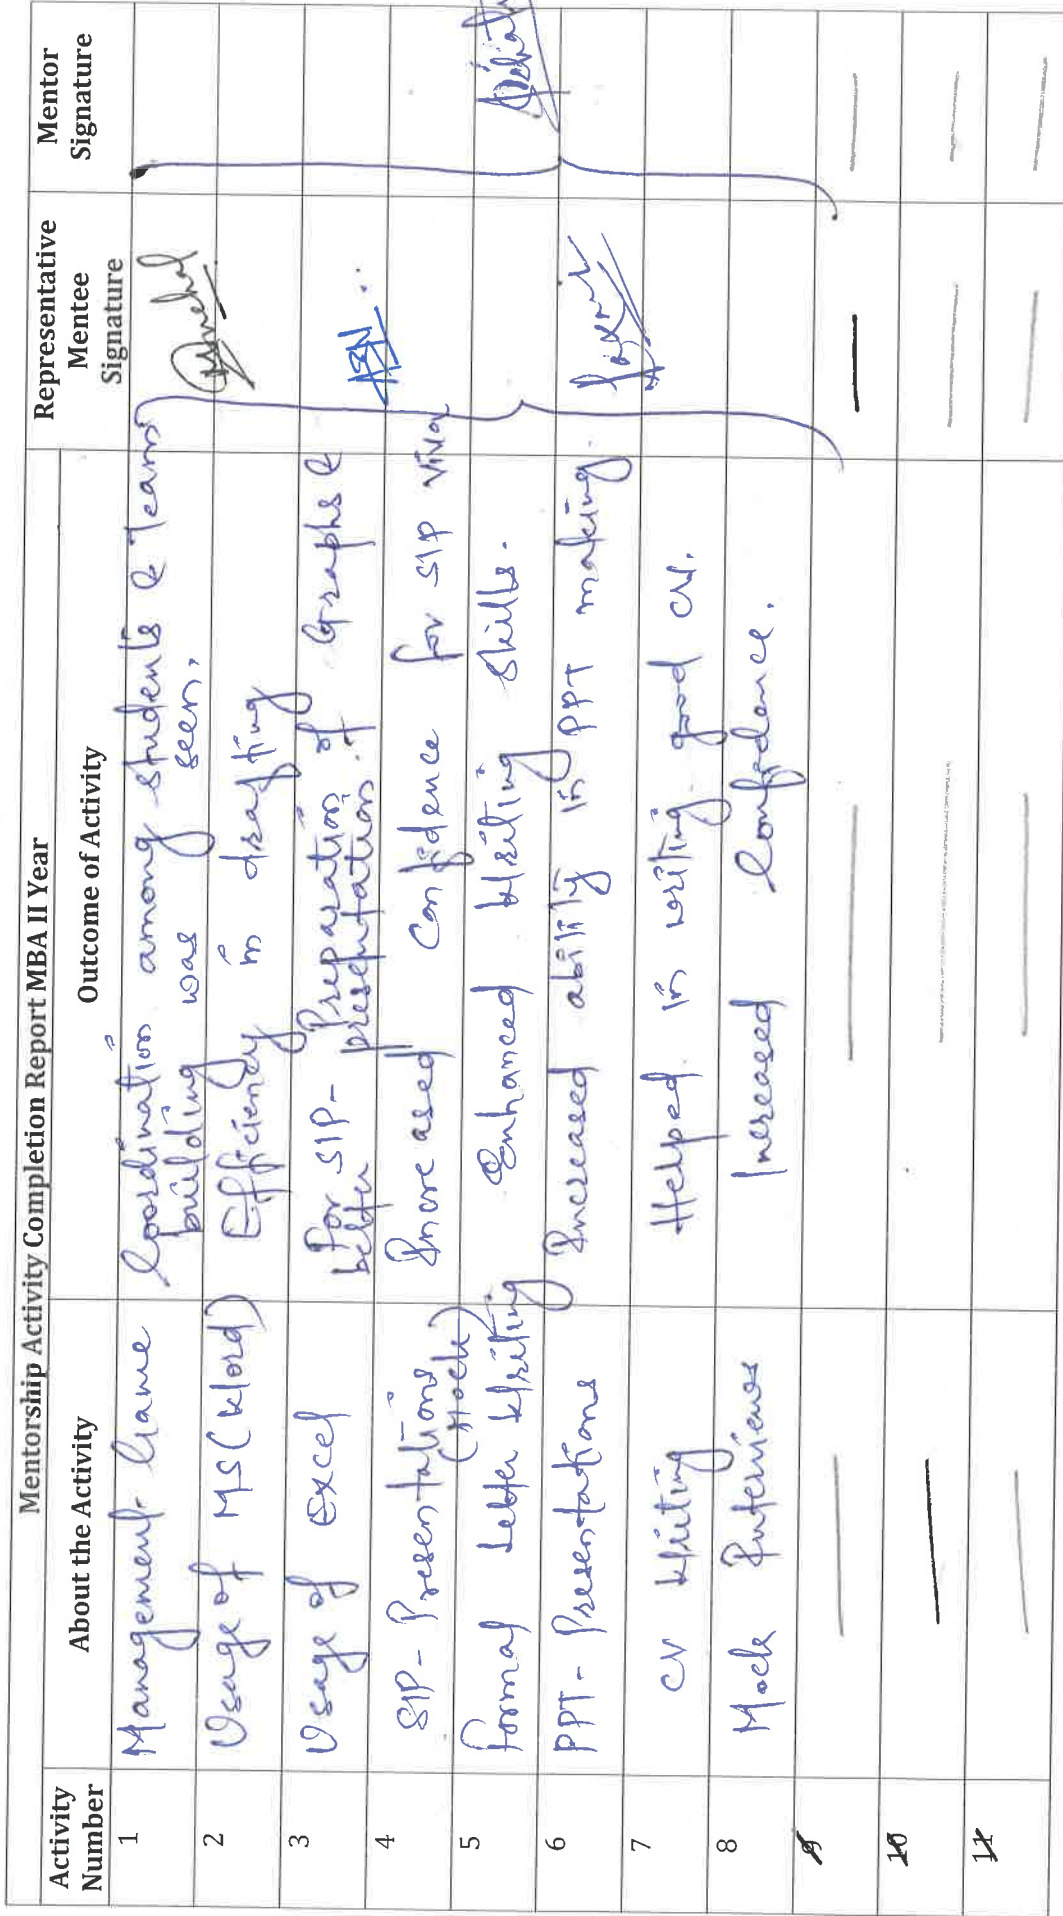 Mentorship Activity Completion Report MBA II Year
Activity Number | About the Activity | Outcome of Activity | Representative Mentee Signature | Mentor Signature
1 | Management Game | Coordination among students & Team building was seen.
2 | Usage of MS (Word) | Efficiency in drafting
3 | Usage of Excel | For SIP- Preparation of Graphs & better presentation.
4 | SIP-Presentations (Mock) | Increased Confidence for SIP Viva
5 | Formal Letter Writing | Enhanced Writing Skills.
6 | PPT-Presentations | Increased ability in PPT making.
7 | CV Writing | Helped in writing good CV.
8 | Mock Interviews | Increased Confidence.
9
10
11